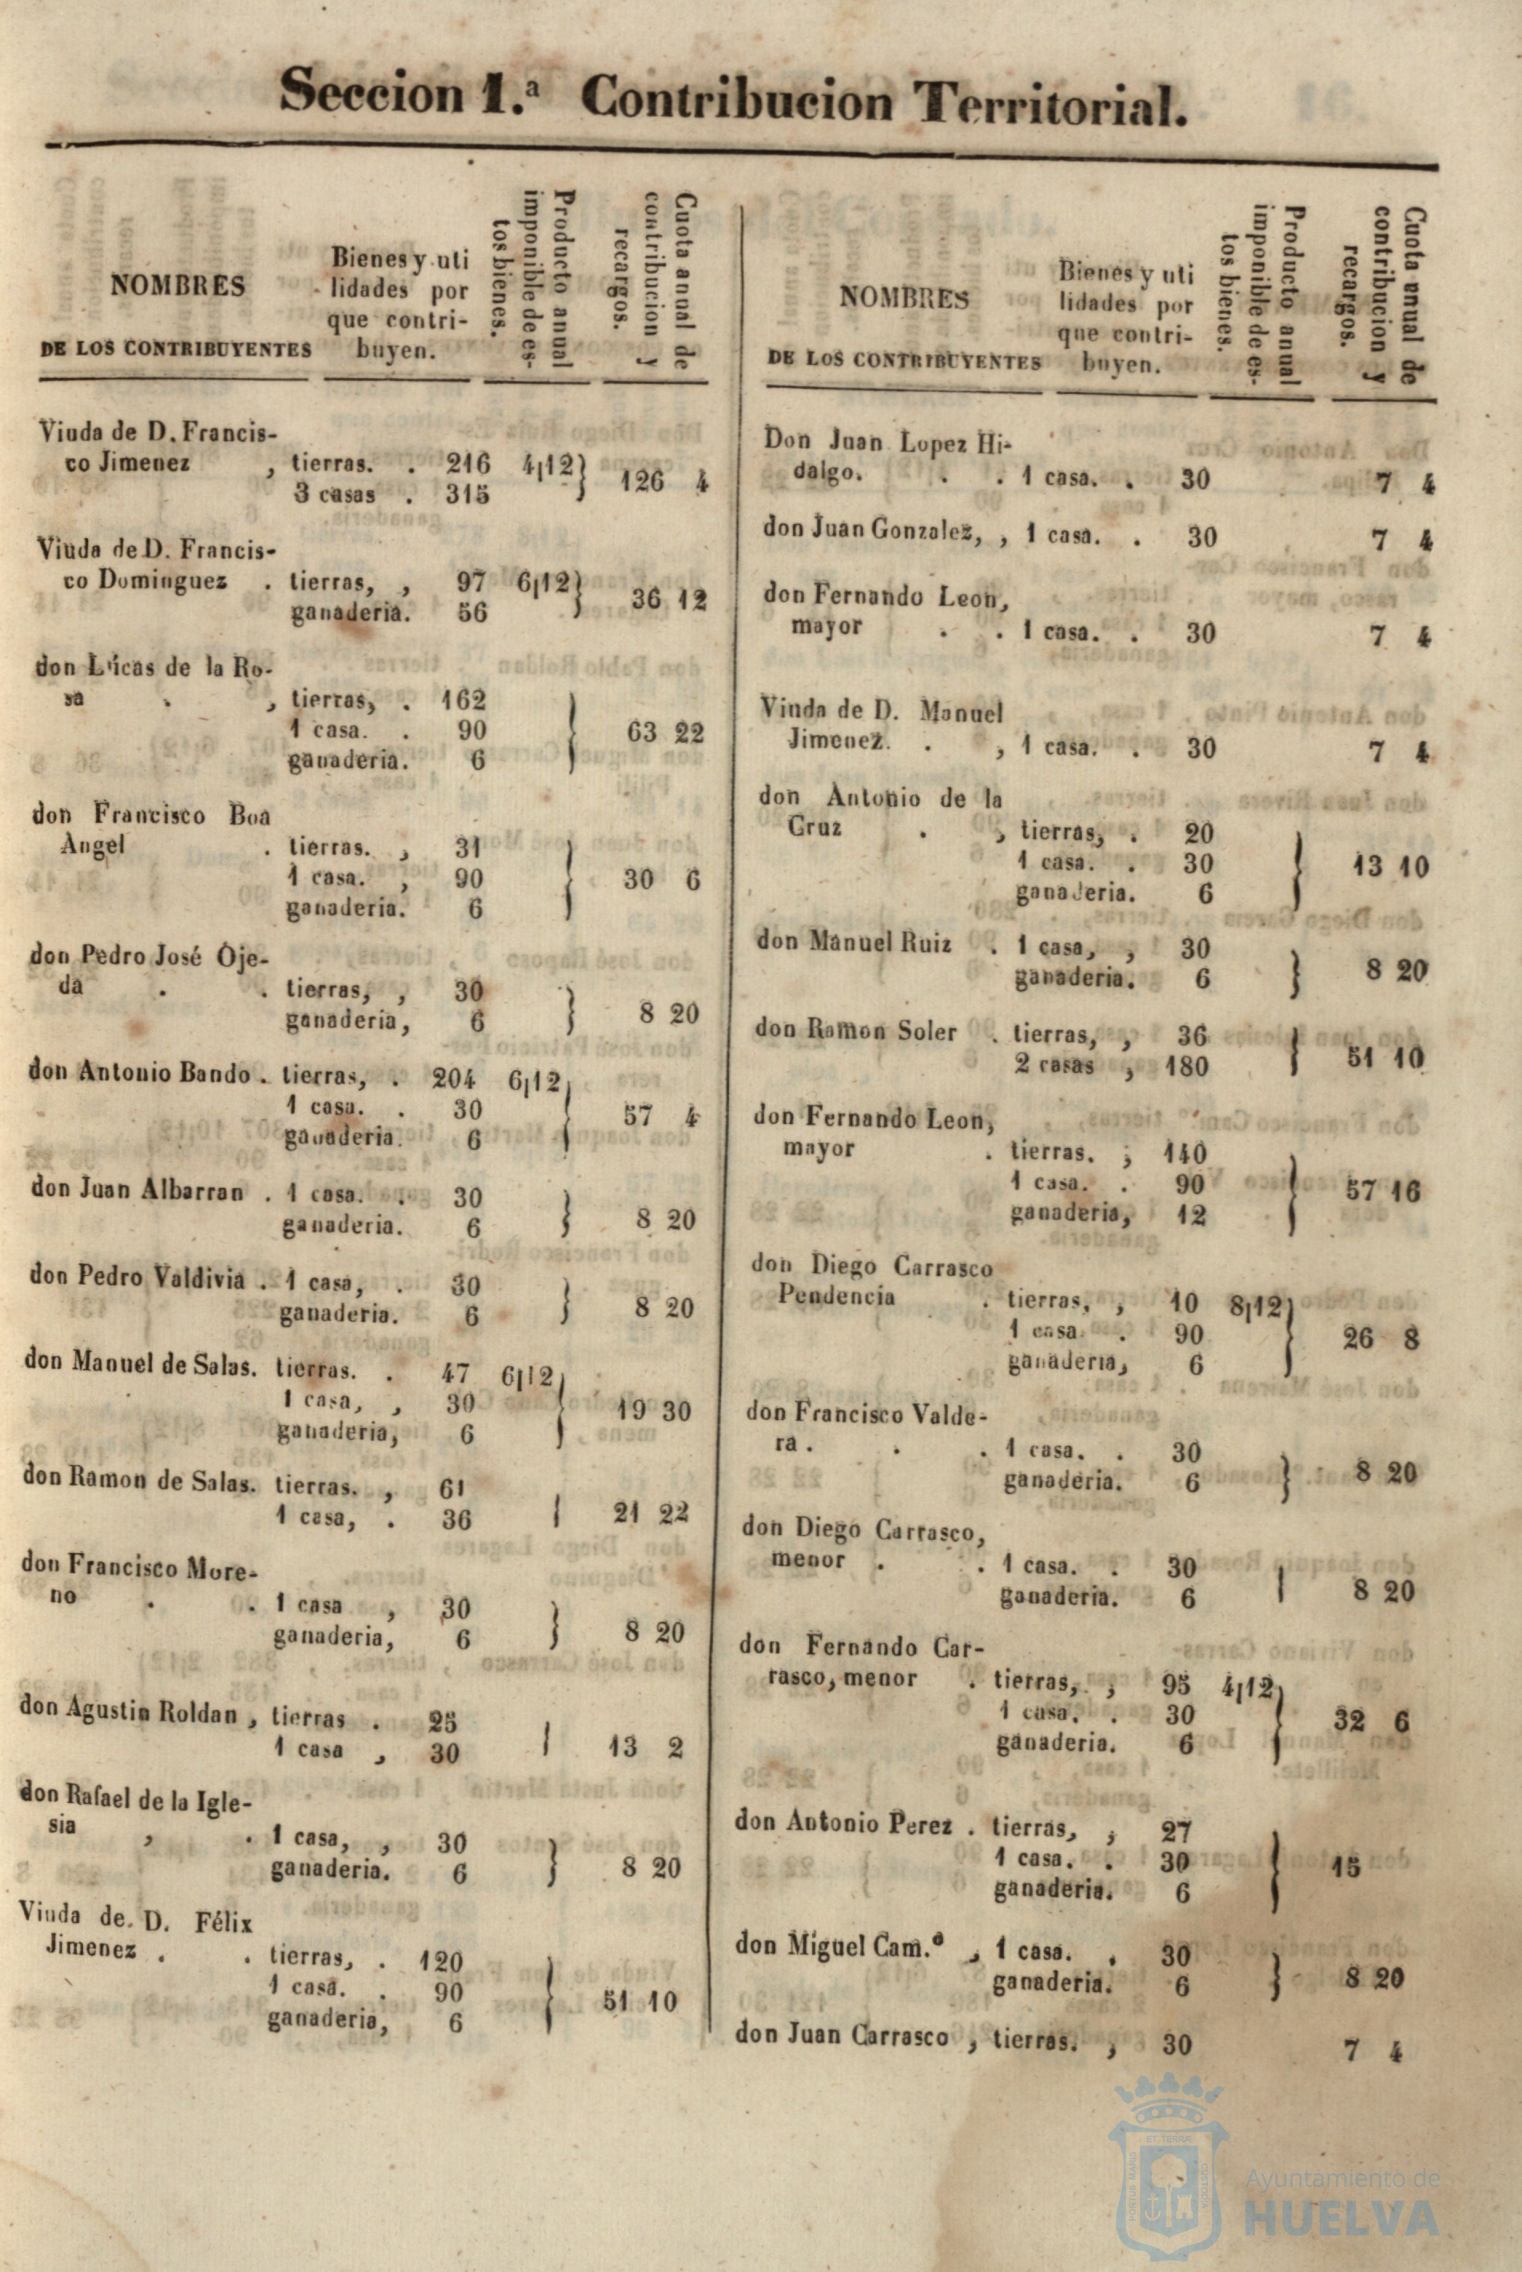 Seccion 1.ª Contribucion Territorial.
NOMBRES
DE LOS CONTRIBUYENTES
Bienes y uti
lidades por
que contri-
buyen.
Producto anual
imponible de es-
tos bienes.
Cuota anual de
contribucion y
recargos.
Viuda de D. Francis-
co Jimenez , tierras. . 216 4|12} 126 4
3 casas . 315
Viuda de D. Francis-
co Dominguez . tierras, , 97 6|12} 36 12
ganaderia. 56
don Lucas de la Ro-
sa . , tierras, . 162
1 casa. . 90 } 63 22
ganaderia. 6
don Francisco Boa
Angel . tierras. , 31
1 casa. , 90 } 30 6
ganaderia. 6
don Pedro José Oje-
da . . tierras, , 30 } 8 20
ganaderia, 6
don Antonio Bando . tierras, . 204 6|12
1 casa. . 30 } 57 4
ganaderia. 6
don Juan Albarran . 1 casa. . 30 } 8 20
ganaderia. 6
don Pedro Valdivia . 1 casa, . 30 } 8 20
ganaderia. 6
don Manuel de Salas. tierras. . 47 6|12
1 casa, , 30 } 19 30
ganaderia, 6
don Ramon de Salas. tierras. , 61
1 casa, . 36 | 21 22
don Francisco More-
no . . 1 casa , 30 } 8 20
ganaderia, 6
don Agustin Roldan , tierras . 25
1 casa , 30 | 13 2
don Rafael de la Igle-
sia , . 1 casa, , 30 } 8 20
ganaderia. 6
Viuda de. D. Félix
Jimenez . . tierras, . 120
1 casa. . 90 } 51 10
ganaderia, 6
NOMBRES
DE LOS CONTRIBUYENTES
Bienes y uti
lidades por
que contri-
buyen.
Producto anual
imponible de es-
tos bienes.
Cuota anual de
contribucion y
recargos.
Don Juan Lopez Hi-
dalgo. . . 1 casa. . 30 7 4
don Juan Gonzalez, , 1 casa. . 30 7 4
don Fernando Leon,
mayor . . 1 casa. . 30 7 4
Viuda de D. Manuel
Jimenez. . , 1 casa. . 30 7 4
don Antonio de la
Cruz . , tierras, . 20
1 casa. . 30 } 13 10
ganaderia. 6
don Manuel Ruiz . 1 casa, , 30 } 8 20
ganaderia. 6
don Ramon Soler . tierras, , 36 | 51 10
2 casas , 180
don Fernando Leon,
mayor . tierras. ; 140
1 casa. . 90 } 57 16
ganaderia, 12
don Diego Carrasco
Pendencia . tierras, , 10 8|12
1 casa. . 90 } 26 8
ganaderia, 6
don Francisco Valde-
ra . . . 1 casa. . 30 } 8 20
ganaderia. 6
don Diego Carrasco,
menor . . 1 casa. . 30 | 8 20
ganaderia. 6
don Fernando Car-
rasco, menor . tierras, , 95 4|12
1 casa. . 30 } 32 6
ganaderia. 6
don Antonio Perez . tierras, , 27
1 casa. . 30 } 15
ganaderia. 6
don Miguel Cam.º , 1 casa. . 30 } 8 20
ganaderia. 6
don Juan Carrasco , tierras. , 30 7 4
Ayuntamiento de
HUELVA